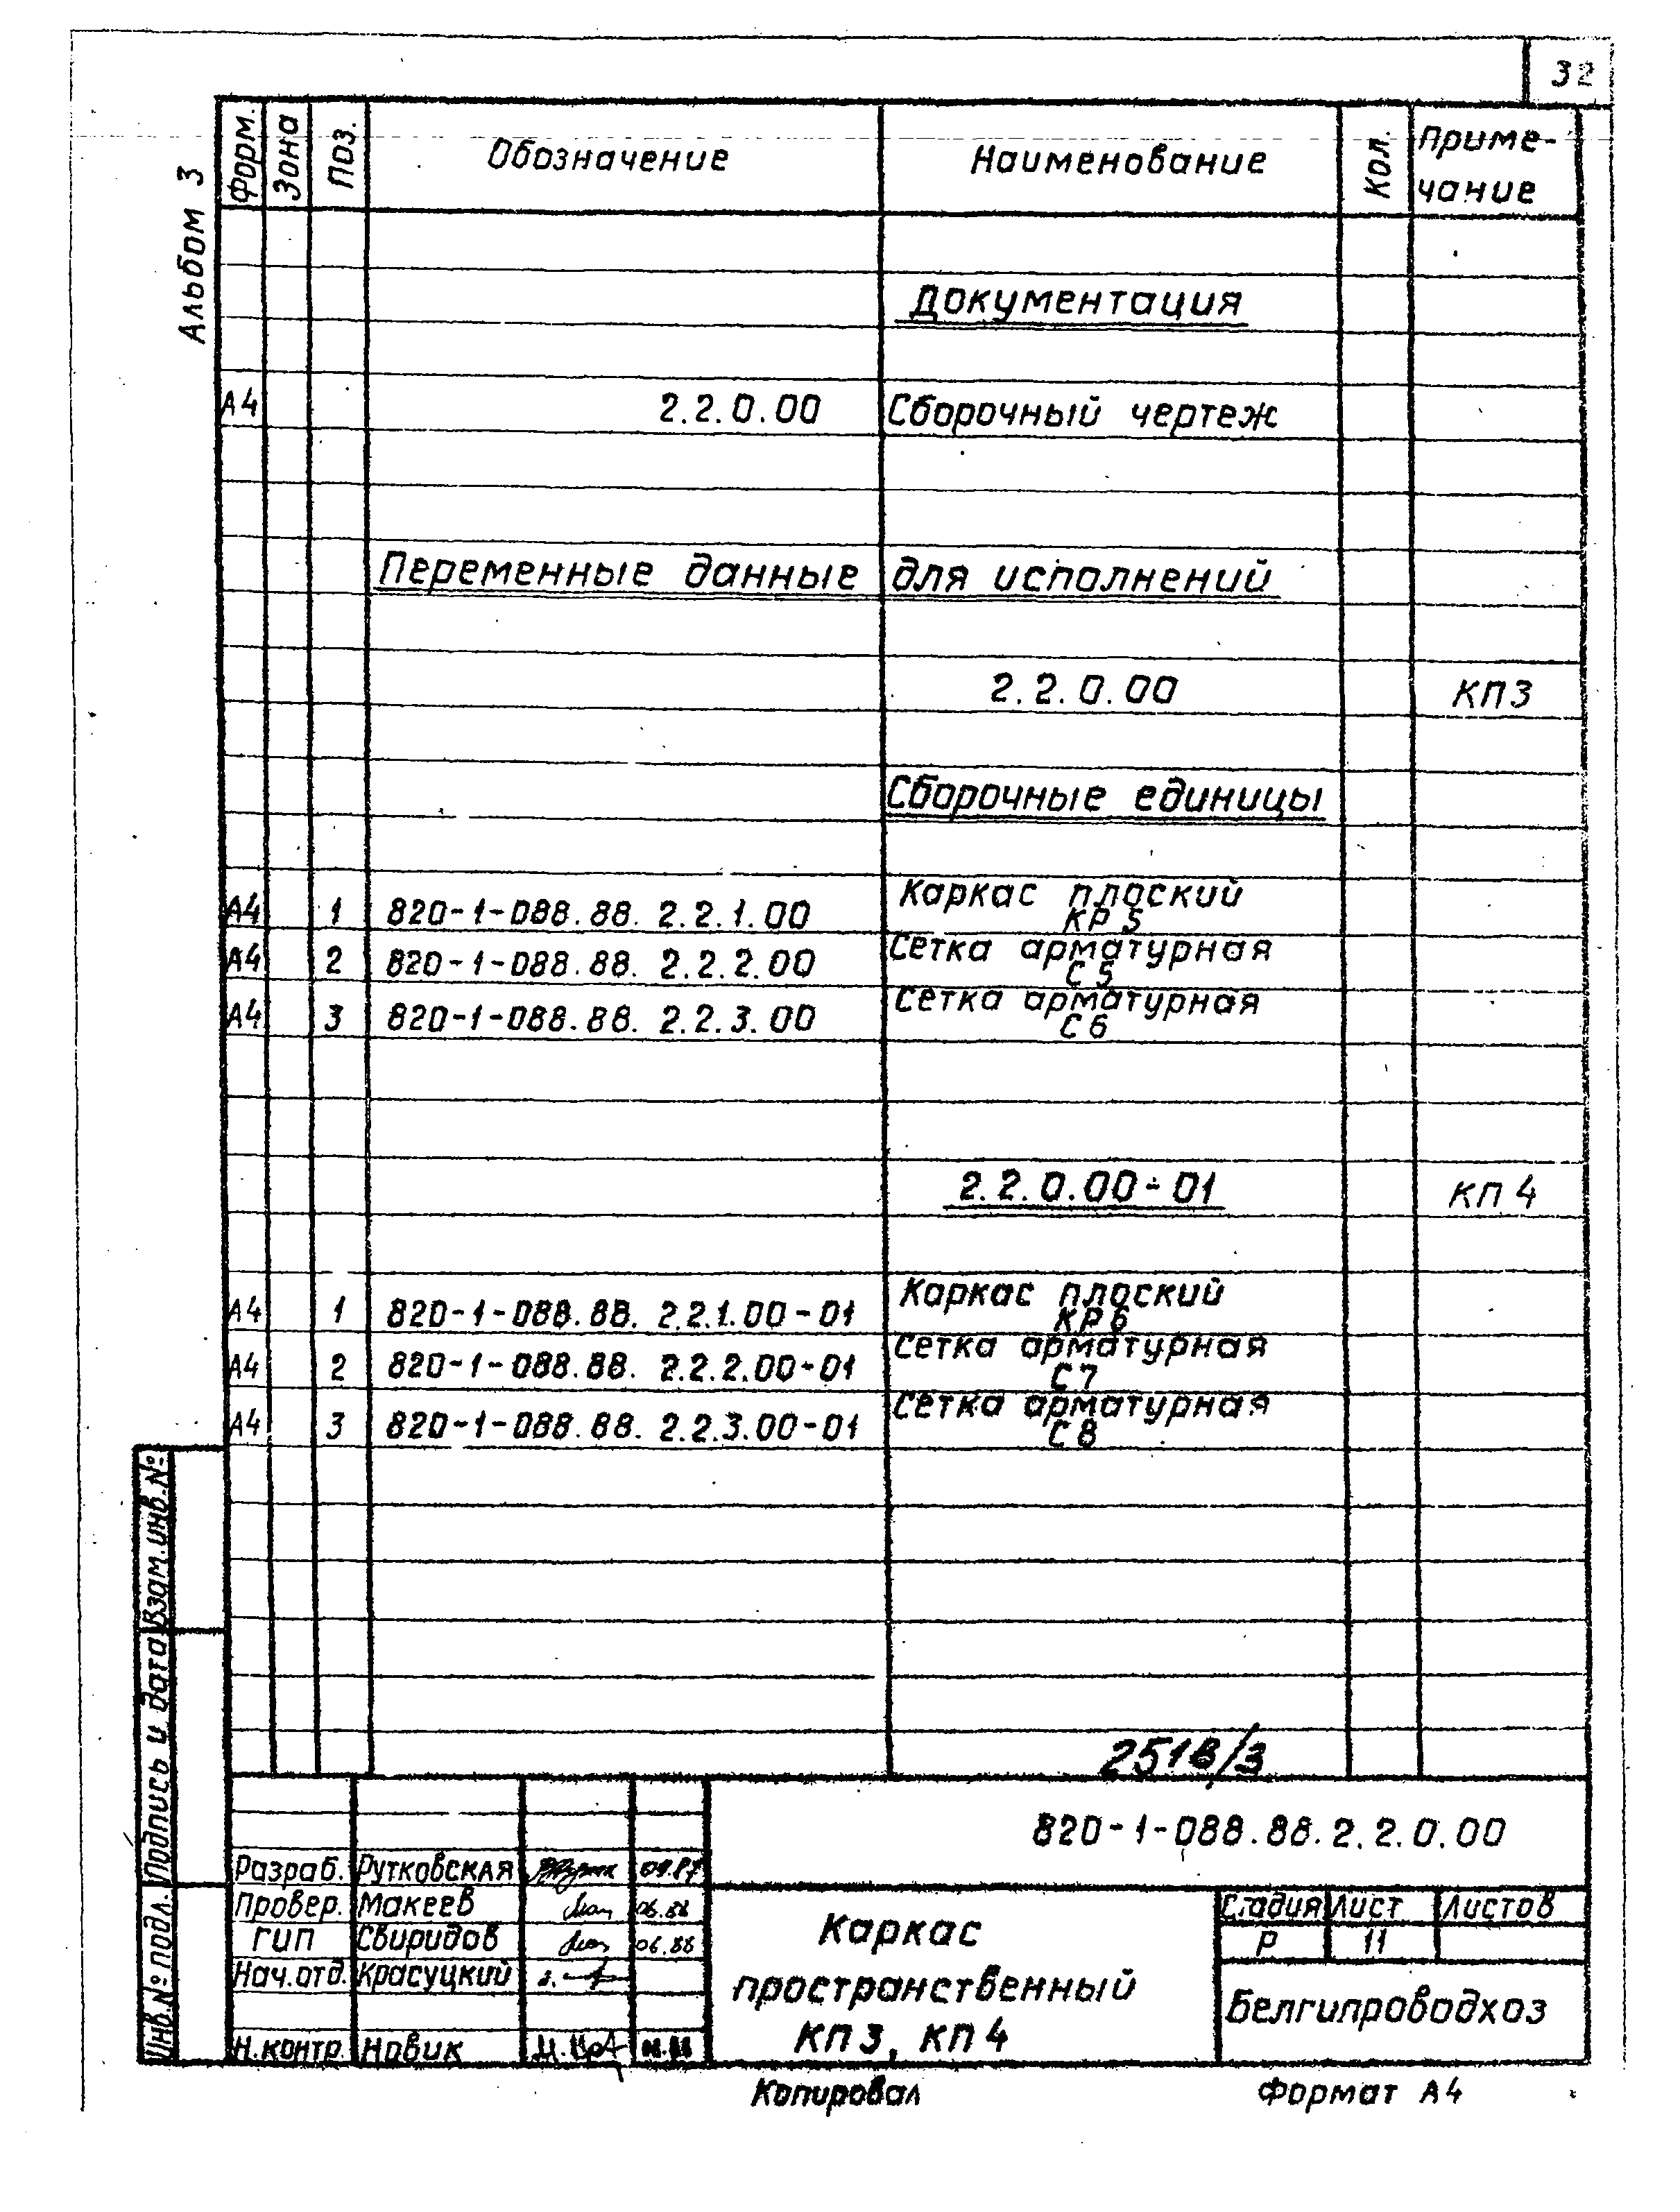 32
Альбом 3
Форм. Зона Поз. Обозначение Наименование Кол. Приме-
чание
Документация
А4 2.2.0.00 Сборочный чертеж
Переменные данные для исполнений
2.2.0.00 КП3
Сборочные единицы
А4 1 820-1-088.88. 2.2.1.00 Каркас плоский
КР5
А4 2 820-1-088.88. 2.2.2.00 Сетка арматурная
С5
А4 3 820-1-088.88. 2.2.3.00 Сетка арматурная
С6
2.2.0.00-01 КП4
А4 1 820-1-088.88. 2.2.1.00-01 Каркас плоский
КР6
А4 2 820-1-088.88. 2.2.2.00-01 Сетка арматурная
С7
А4 3 820-1-088.88. 2.2.3.00-01 Сетка арматурная
С8
Взам.инв.№
Подпись и дата
Инв.№ подл.
2518/3
820-1-088.88.2.2.0.00
Разраб. Рутковская 09.87
Провер. Макеев 06.88
ГИП Свиридов 06.88
Нач.отд. Красуцкий
Н.контр. Новик
Каркас
пространственный
КП3, КП4
Стадия Лист Листов
Р 11
Белгипроводхоз
Копировал Формат А4